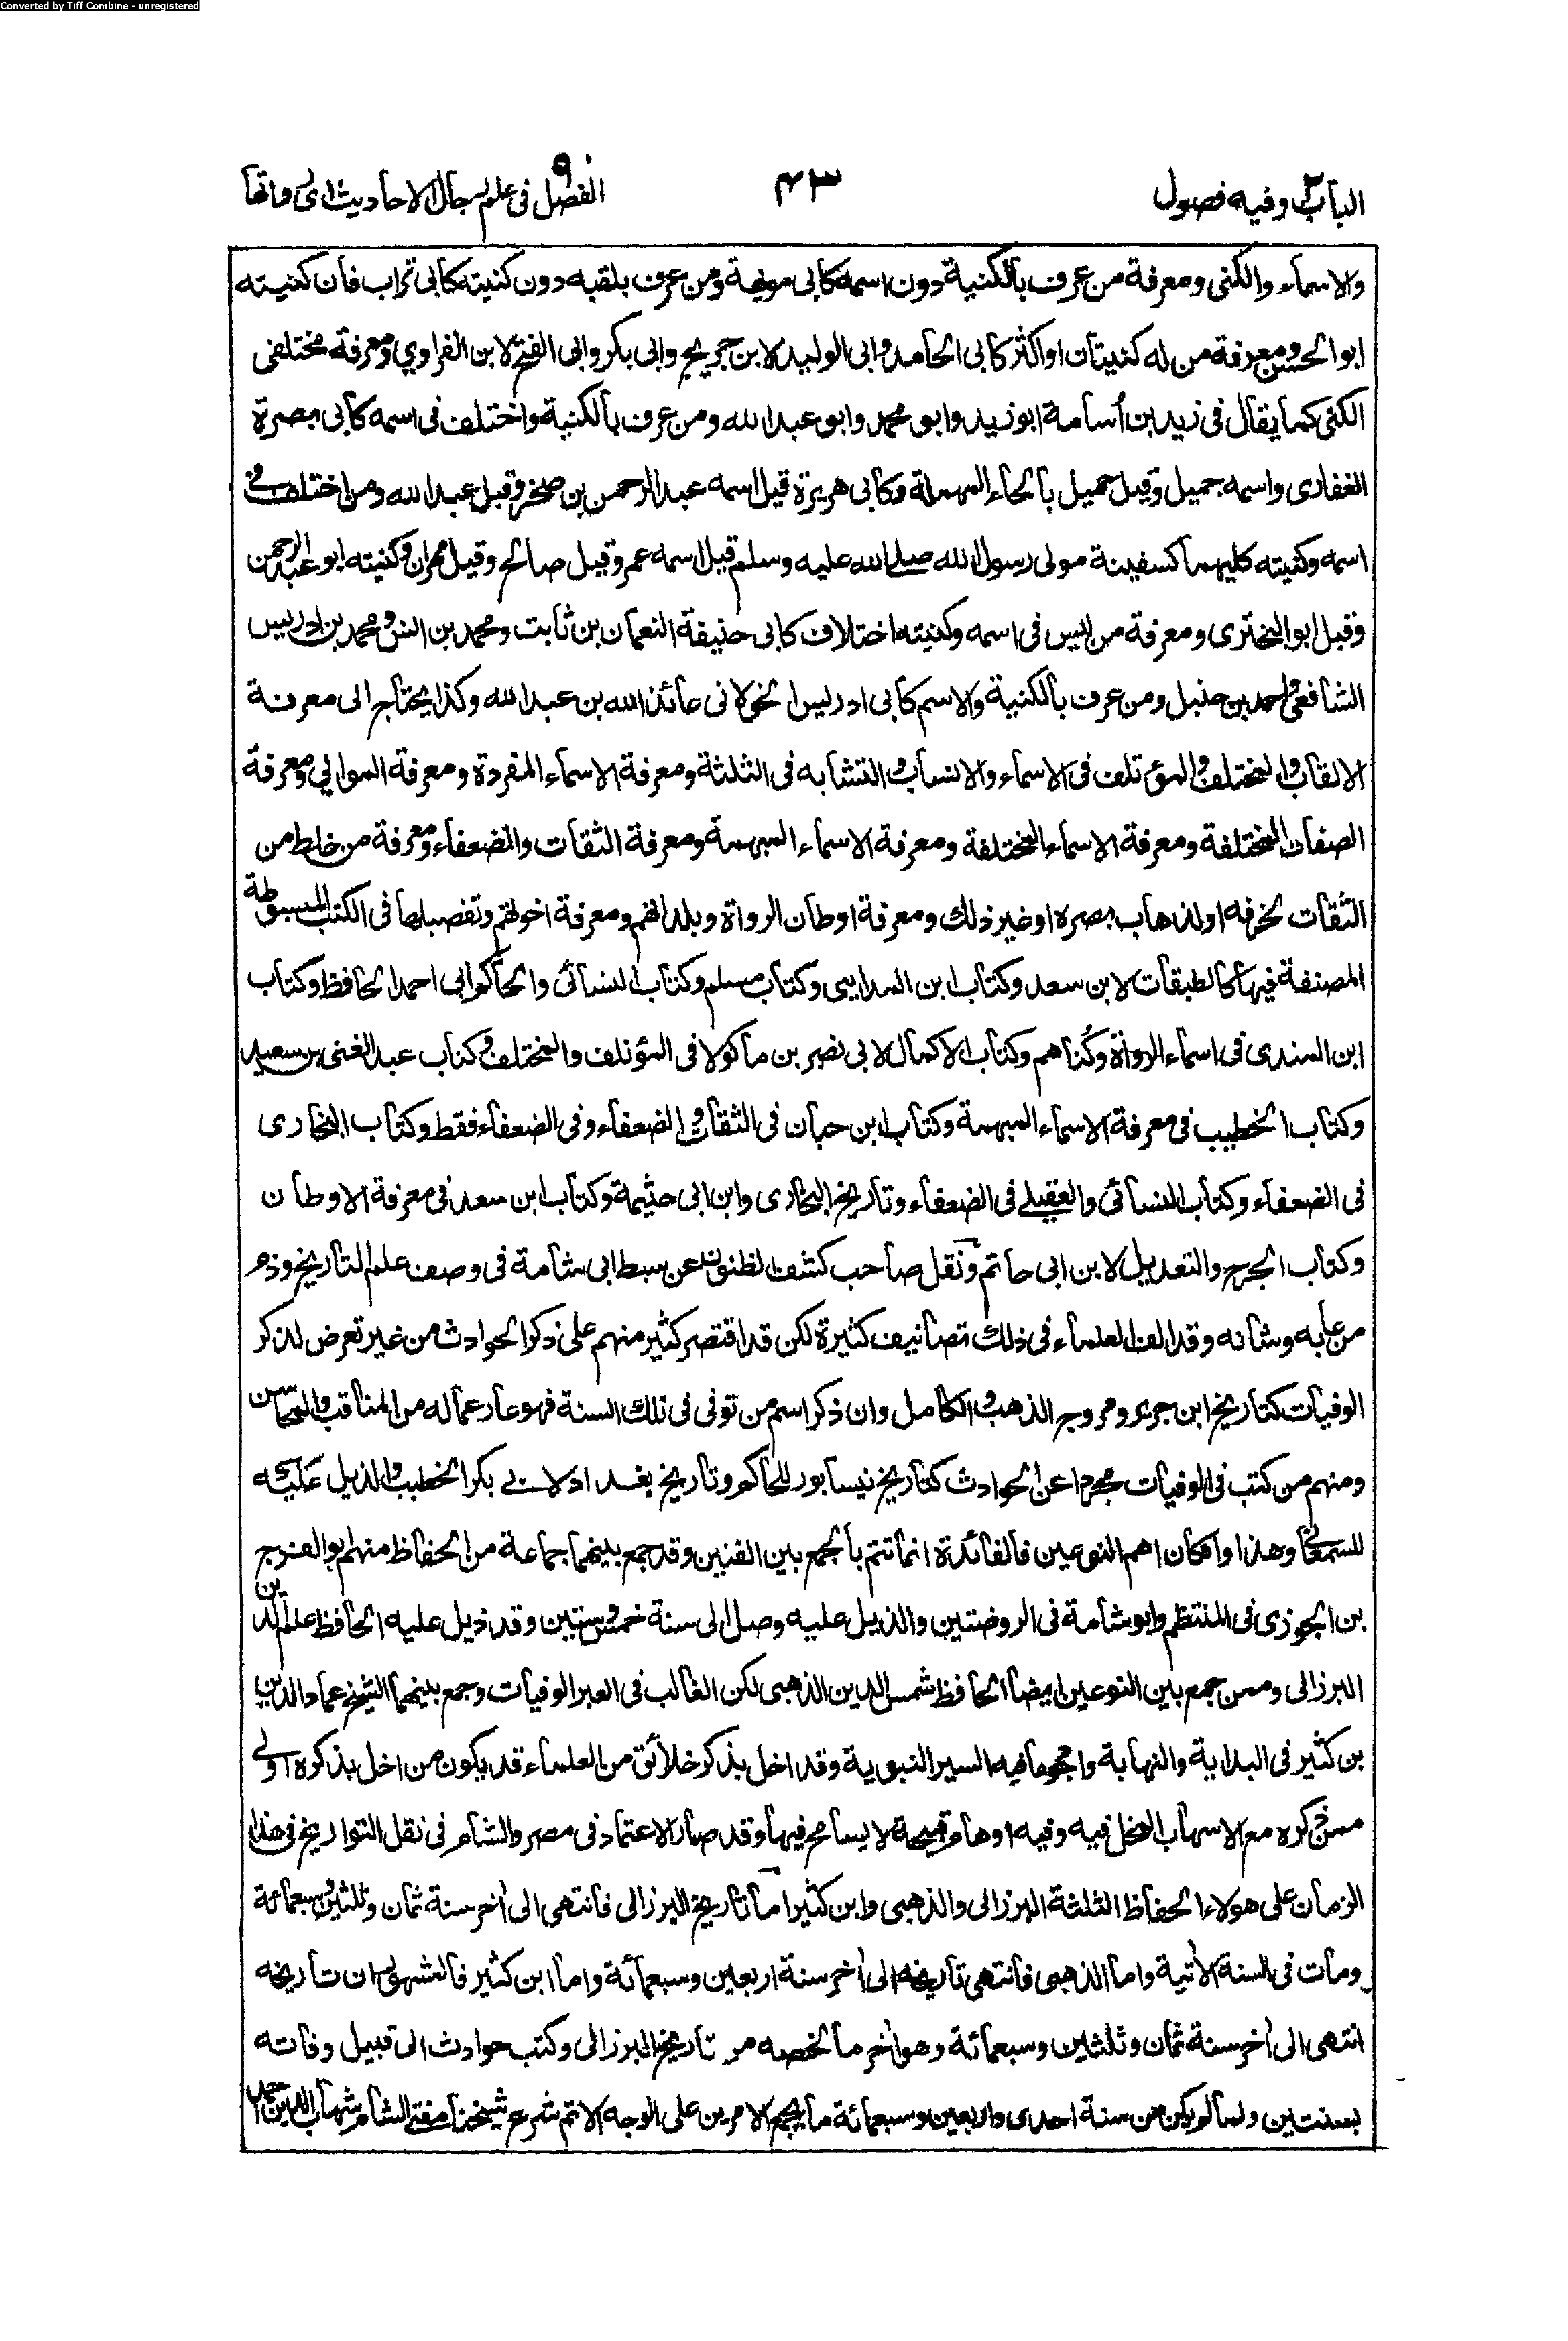 Converted by Tiff Combine - unregistered
الباب ٢ وفيه فصول
٤٣
الفصل ٩ في علم رجال الاحاديث اى رواتها
والاسماء والكنى ومعرفة من عرف بالكنية دون اسمه كابى مويهبة ومن عرف بلقبه دون كنيته كابى تراب فان كنيته
ابو الحسن ومعرفة من له كنيتان او اكثر كابى الحامد وابى الوليد لابن جريج وابى بكر وابى الفتح لابن الفراوي ومعرفة مختلفى
الكنى كما يقال فى زيد بن أسامة ابو زيد وابو محمد وابو عبد الله ومن عرف بالكنية واختلف فى اسمه كابى بصرة
الغفارى واسمه جميل وقيل حميل بالحاء المهملة وكابى هريرة قيل اسمه عبد الرحمن بن صخر وقيل عبد الله ومن اختلف فى
اسمه وكنيته كليهما كسفينة مولى رسول الله صلى الله عليه وسلم قيل اسمه عمر وقيل صالح وقيل مهران وكنيته ابو عبد الرحمن
وقيل ابو البخترى ومعرفة من ليس فى اسمه وكنيته اختلاف كابى حنيفة النعمان بن ثابت ومحمد بن انس ومحمد بن ادريس
الشافعى واحمد بن حنبل ومن عرف بالكنية والاسم كابى ادريس الخولانى عائذ الله بن عبد الله وكذا يحتاج الى معرفة
الالقاب والمختلف والمؤتلف فى الاسماء والانساب والتشابه فى الثلثة ومعرفة الاسماء المفردة ومعرفة الموالي ومعرفة
الصفات المختلفة ومعرفة الاسماء المختلفة ومعرفة الاسماء المبهمة ومعرفة الثقات والضعفاء ومعرفة من خلط من
الثقات لخرفه او لذهاب بصره او غير ذلك ومعرفة اوطان الرواة وبلدانهم ومعرفة اخوتهم وتفصيلها فى الكتب المبسوطة
المصنفة فيها كالطبقات لابن سعد وكتاب ابن المدايبى وكتاب مسلم وكتاب النسائى والحاكم ابى احمد الحافظ وكتاب
ابن المندى فى اسماء الرواة وكُناهم وكتاب الاكمال لابى نصر بن ماكولا فى المؤتلف والمختلف وكتاب عبد الغنى بن سعيد
وكتاب الخطيب فى معرفة الاسماء المبهمة وكتاب ابن حبان فى الثقات والضعفاء وفى الضعفاء فقط وكتاب البخارى
فى الضعفاء وكتاب النسائى والعقيلى فى الضعفاء وتاريخ البخارى وابن ابى حثيمة وكتاب ابن سعد فى معرفة الاوطان
وكتاب الجرح والتعديل لابن ابى حاتم ونقل صاحب كشف الظنون عن سبط ابى شامة فى وصف علم التاريخ وذم
من عابه وشانه وقد الف العلماء فى ذلك تصانيف كثيرة لكن قد اقتصر كثير منهم على ذكر الحوادث من غير تعرض لذكر
الوفيات كتاريخ ابن جرير ومروج الذهب والكامل وان ذكر اسم من توفى فى تلك السنة فهو عار عماله من المناقب والمحاسن
ومنهم من كتب فى الوفيات مجردا عن الحوادث كتاريخ نيسابور للحاكم وتاريخ بغداد لابى بكر الخطيب والذيل عليه
للسمعانى وهذا وان كان اهم النوعين فالفائدة انما تتم بالجمع بين الفنين وقد جمع بينهما جماعة من الحفاظ منهم ابو الفرج
بن الجوزى فى المنتظم وابو شامة فى الروضتين والذيل عليه وصل الى سنة خمس وستين وقد ذيل عليه الحافظ علم الدين
البرزالى وممن جمع بين النوعين ايضا الحافظ شمس الدين الذهبى لكن الغالب فى العبر الوفيات وجمع بينهما الشيخ عماد الدين
بن كثير فى البداية والنهاية واجود ما فيه السير النبوية وقد اخل بذكر خلائق من العلماء قد يكون من اخل بذكره اولى
ممن ذكره مع الاسهاب المخل فيه وفيه اوهام قبيحة لا يسامح فيها وقد صار الاعتماد فى مصر والشام فى نقل التواريخ فى هذا
الزمان على هولاء الحفاظ الثلثة البرزالى والذهبى وابن كثير اما تاريخ البرزالى فانتهى الى اخر سنة ثمان وثلثين وسبعمائة
ومات فى السنة الأتية واما الذهبى فانتهى تاريخه الى أخر سنة اربعين وسبعمائة واما ابن كثير فالمشهور ان تاريخه
انتهى الى أخر سنة ثمان وثلثين وسبعمائة وهو أخر ما لخصه من تاريخ البرزالى وكتب حوادث الى قبيل وفاته
بسنتين ولما لم يكن من سنة احدى واربعين وسبعمائة ما يجمع الامرين على الوجه الاتم شرع شيخنا مفتى الشام شهاب الدين احمد